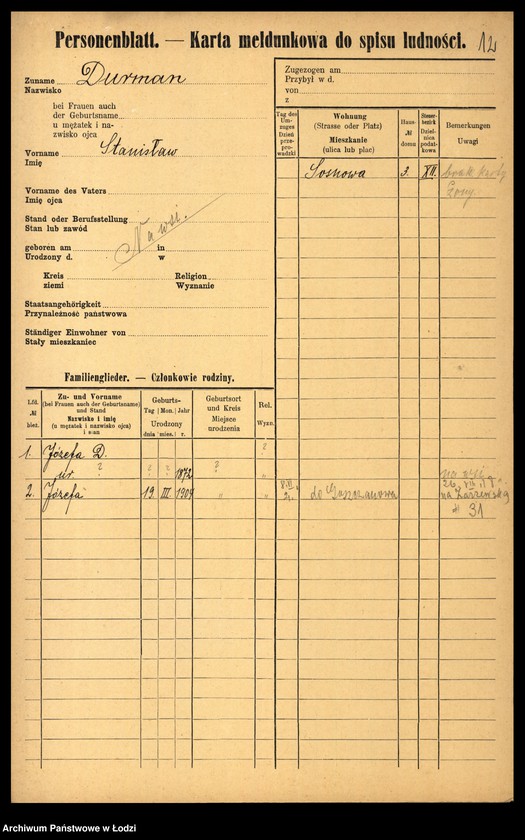 Personenblatt. — Karta meldunkowa do spisu ludności. 12
Zuname Durman
Nazwisko
bei Frauen auch
der Geburtsname
u mężatek i na-
zwisko ojca
Vorname Stanisław
Imię
Vorname des Vaters
Imię ojca
Stand oder Berufsstellung
Stan lub zawód
Na wsi.
geboren am in
Urodzony d. w
Kreis Religion
ziemi Wyznanie
Staatsangehörigkeit
Przynależność państwowa
Ständiger Einwohner von
Stały mieszkaniec
Zugezogen am
Przybył w d.
von
z
Tag des Um-zuges
Dzień prze-pro-wadzki
Wohnung
(Strasse oder Platz)
Mieszkanie
(ulica lub plac)
Haus-
№
domu
Steuer-bezirk
Dziel-nica podat-kowa
Bemerkungen
Uwagi
Sosnowa 3. XII. brak karty
żony
Familienglieder. — Członkowie rodziny.
Lfd.
№
bież.
Zu- und Vorname
(bei Frauen auch der Geburtsname)
und Stand
Nazwisko i imię
(u mężatek i nazwisko ojca)
i stan
Geburts-
Tag Mon. Jahr
Urodzony
dnia mies. r.
Geburtsort
und Kreis
Miejsce
urodzenia
Rel.
Wyzn.
1. Józefa D. ?
ur. ? ? ? 1872 ? "
2. Józefa 19 III 1904 " "
8.II
21. do
na wsi
26. VII. 18
na
№ 31
Archiwum Państwowe w Łodzi